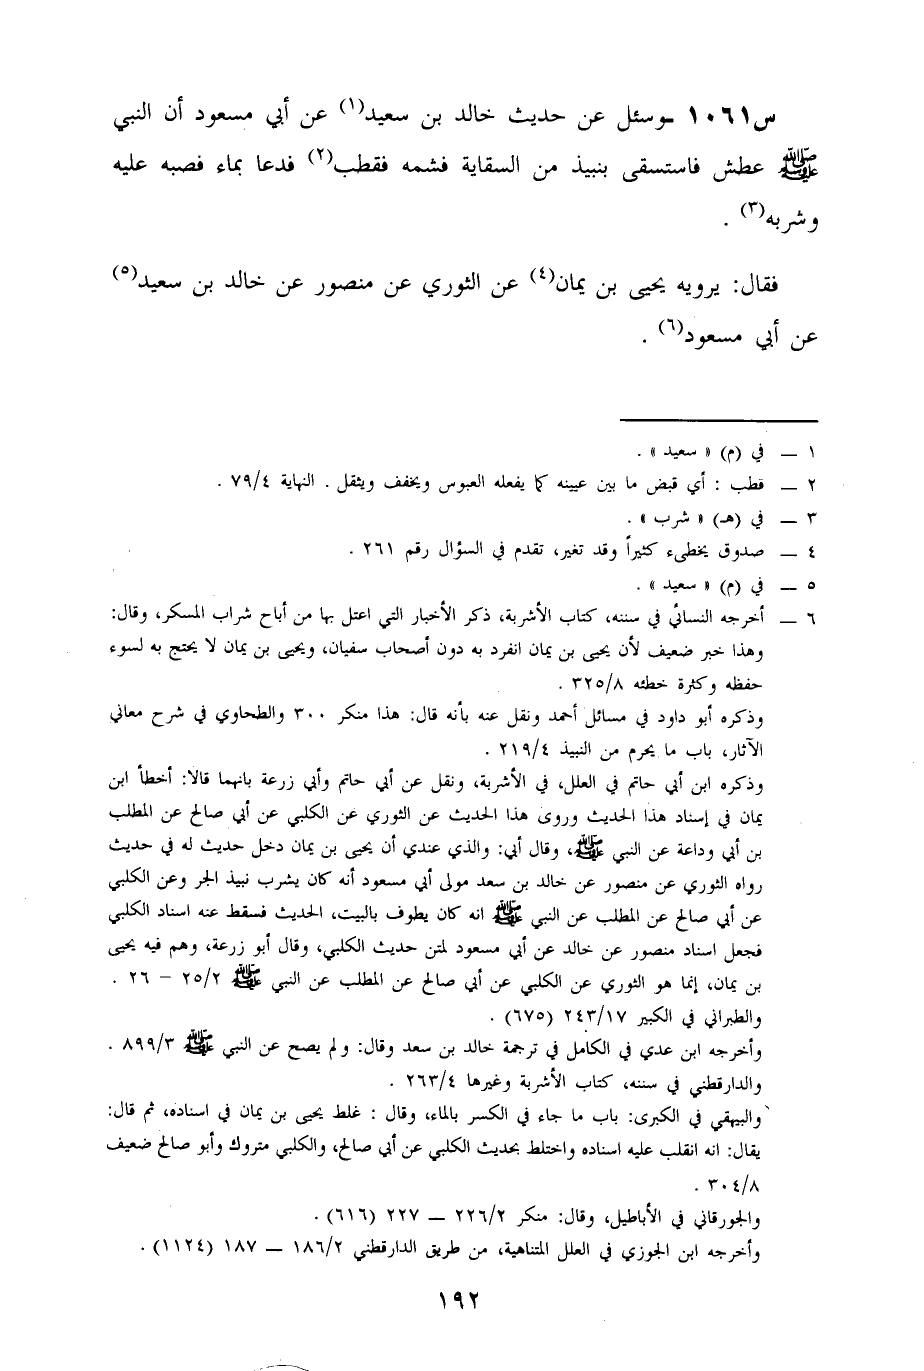 س١٠٦١ ـ وسئل عن حديث خالد بن سعيد(١) عن أبي مسعود أن النبي
ﷺ عطش فاستسقى بنبيذ من السقاية فشمه فقطب(٢) فدعا بماء فصبه عليه
وشربه(٣) .
فقال: يرويه يحيى بن يمان(٤) عن الثوري عن منصور عن خالد بن سعيد(٥)
عن أبي مسعود(٦) .
١ ــ في (م) « سعيد » .
٢ ــ قطب : أي قبض ما بين عيينه كما يفعله العبوس ويخفف ويثقل . النهاية ٧٩/٤ .
٣ ــ في (هـ) « شرب » .
٤ ــ صدوق يخطىء كثيراً وقد تغير، تقدم في السؤال رقم ٢٦١ .
٥ ــ في (م) « سعيد » .
٦ ــ أخرجه النسائي في سننه، كتاب الأشربة، ذكر الأخبار التي اعتل بها من أباح شراب المسكر، وقال:
وهذا خبر ضعيف لأن يحيى بن يمان انفرد به دون أصحاب سفيان، ويحيى بن يمان لا يحتج به لسوء
حفظه وكثرة خطئه ٣٢٥/٨ .
وذكره أبو داود في مسائل أحمد ونقل عنه بأنه قال: هذا منكر ٣٠٠ والطحاوي في شرح معاني
الآثار، باب ما يحرم من النبيذ ٢١٩/٤ .
وذكره ابن أبي حاتم في العلل، في الأشربة، ونقل عن أبي حاتم وأبي زرعة بانهما قالا: أخطأ ابن
يمان في إسناد هذا الحديث وروى هذا الحديث عن الثوري عن الكلبي عن أبي صالح عن المطلب
بن أبي وداعة عن النبي ﷺ، وقال أبي: والذي عندي أن يحيى بن يمان دخل حديث له في حديث
رواه الثوري عن منصور عن خالد بن سعد مولى أبي مسعود أنه كان يشرب نبيذ الجر وعن الكلبي
عن أبي صالح عن المطلب عن النبي ﷺ انه كان يطوف بالبيت، الحديث فسقط عنه اسناد الكلبي
فجعل اسناد منصور عن خالد عن أبي مسعود لمتن حديث الكلبي، وقال أبو زرعة، وهم فيه يحيى
بن يمان، إنما هو الثوري عن الكلبي عن أبي صالح عن المطلب عن النبي ﷺ ٢٥/٢ ــ ٢٦ .
والطبراني في الكبير ٢٤٣/١٧ (٦٧٥) .
وأخرجه ابن عدي في الكامل في ترجمة خالد بن سعد وقال: ولم يصح عن النبي ﷺ ٨٩٩/٣ .
والدارقطني في سننه، كتاب الأشربة وغيرها ٢٦٣/٤ .
والبيهقي في الكبرى: باب ما جاء في الكسر بالماء، وقال : غلط يحيى بن يمان في اسناده، ثم قال:
يقال: انه انقلب عليه اسناده واختلط بحديث الكلبي عن أبي صالح، والكلبي متروك وأبو صالح ضعيف
٣٠٤/٨ .
والجورقاني في الأباطيل، وقال: منكر ٢٢٦/٢ ــ ٢٢٧ (٦١٦) .
وأخرجه ابن الجوزي في العلل المتناهية، من طريق الدارقطني ١٨٦/٢ ــ ١٨٧ (١١٢٤) .
١٩٢